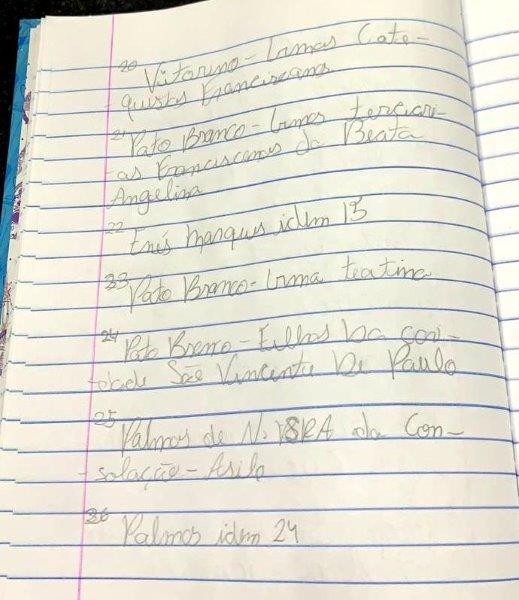 20 Vitorino - Irmas Cate-
quistas Franciscanas
21 Pato Branco - Irmas terciari-
as Franciscanas da Beata
Angelina
22 Enés Marques idem 15
23 Pato Branco - Irma teatina
24 Pato Branco - Filhas Da cari-
dade São Vincente De Paulo
25 Palmas de N. SRA da Con-
solação - Asilo
26 Palmas idem 24